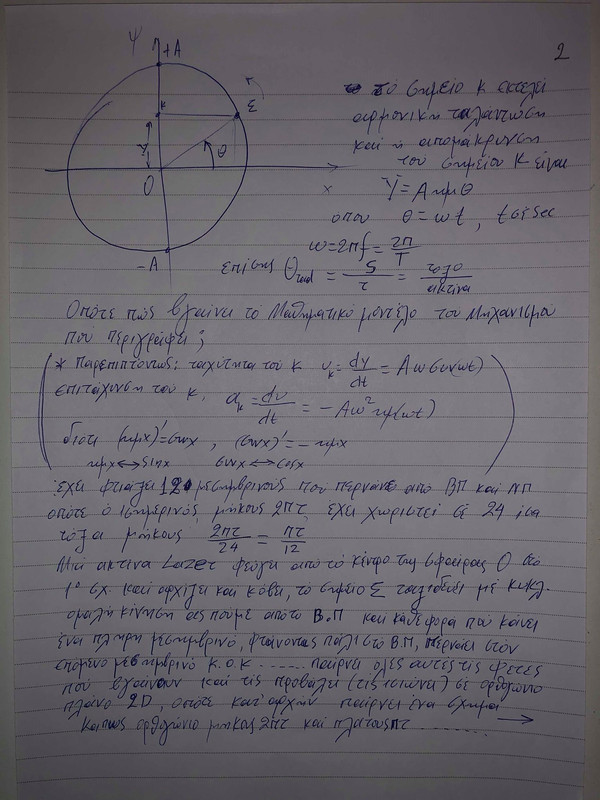 2
Ψ +A
κ Σ
y
θ
O x
-A
το σημείο κ εκτελεί
αρμονική ταλάντωση
και η απομάκρυνση
του σημείου κ είναι
Y = Aημθ
όπου θ = ωt, t σε sec
ω = 2πf = 2π/T
επίσης θrad = S/r = τόξο/ακτίνα
Οπότε πώς βγαίνει το Μαθηματικό μοντέλο του Μηχανισμού
που περιγράφει;
* Παρεπιπτόντως: ταχύτητα του κ υκ = dy/dt = Aωσυν(ωt)
επιτάχυνση του κ, ακ = dυ/dt = -Aω²ημ(ωt)
διότι (ημx)' = συνx, (συνx)' = -ημx
ημx ↔ sinx συνx ↔ cosx
έχει φτιάξει 12 μεσημβρινούς που περνάνε από ΒΠ και ΝΠ
οπότε ο ισημερινός μήκους 2πr έχει χωριστεί σε 24 ίσα
τόξα μήκους 2πr/24 = πr/12
Μιά ακτίνα Lazer φεύγει από το κέντρο της σφαίρας O στο
1ο σχ. και αρχίζει και κόβει, το σημείο Σ ταξιδεύει με κυκλ.
ομαλή κίνηση ας πούμε από το Β.Π και κάθε φορά που κάνει
ένα πλήρη μεσημβρινό, φτάνοντας πάλι στο Β.Π, περνάει στον
επόμενο μεσημβρινό κ.ο.κ ...... παίρνει όλες αυτές τις φέτες
που βγαίνουν και τις προβάλει (τις ισιώνει) σε ορθογώνιο
πλάνο 2D, οπότε κατ' αρχήν παίρνει ένα σχήμα
κάπως ορθογώνιο μήκους 2πr και πλάτους πr ........ →